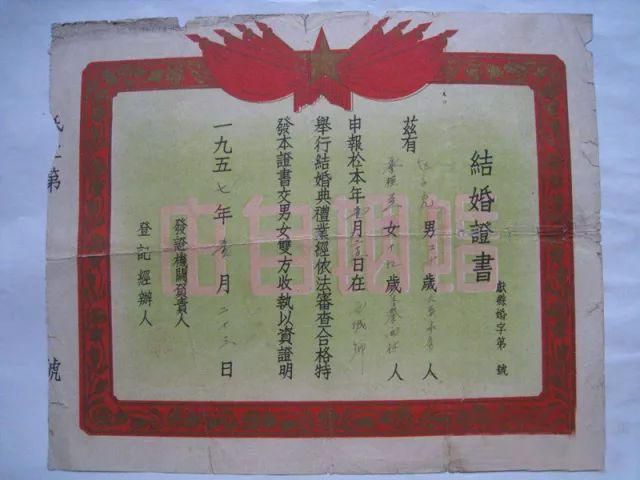 結婚證書
獻縣婚字第 號
茲有 男 歲 人
女 歲 人
申報於本年 月 日在
舉行結婚典禮業經依法審查合格特
發本證書交男女雙方收執以資證明
一九五七年 月二十三日
發證機關負責人
登記經辦人
婚姻自由
第 號